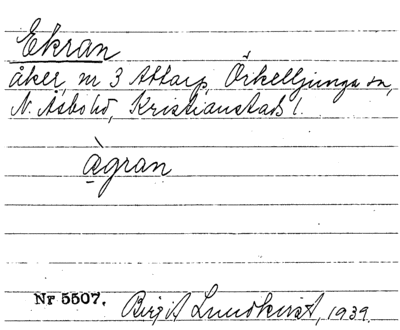 Ekran
åker, nr 3 Attarp, Örkelljunga sn,
N. Åsbo hd, Kristianstads l.
ägran
Nr 5507. Birgit Lundkvist, 1939.